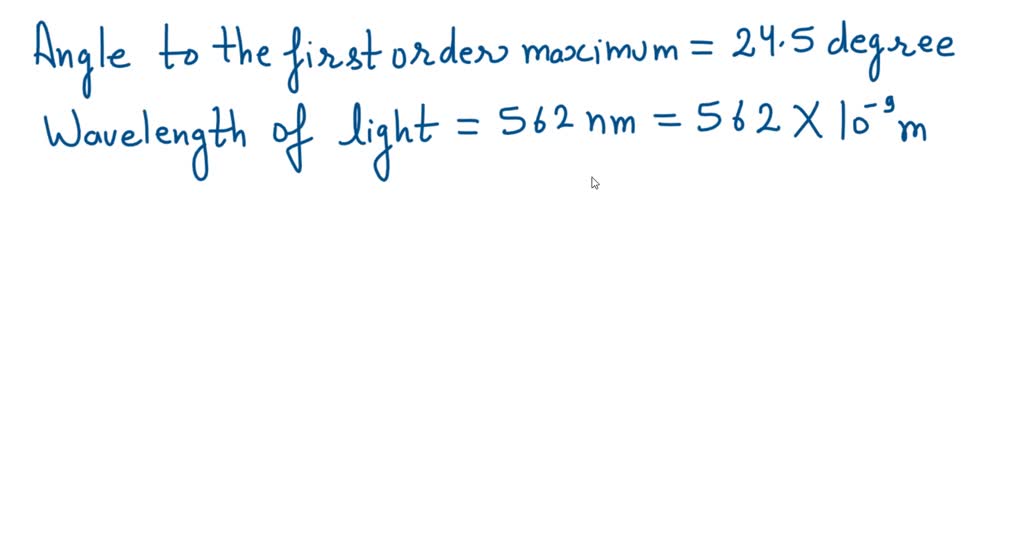 Angle to the first order maximum = 24.5 degree
Wavelength of light = 562 nm = 562 X 10⁻⁹ m